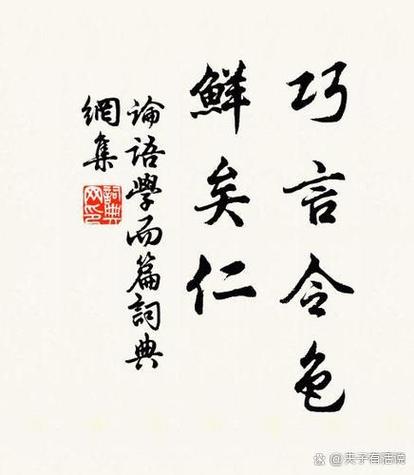 巧言令色
鮮矣仁
論語學而篇詞典
網集
詞典
网印
@夫子有话说